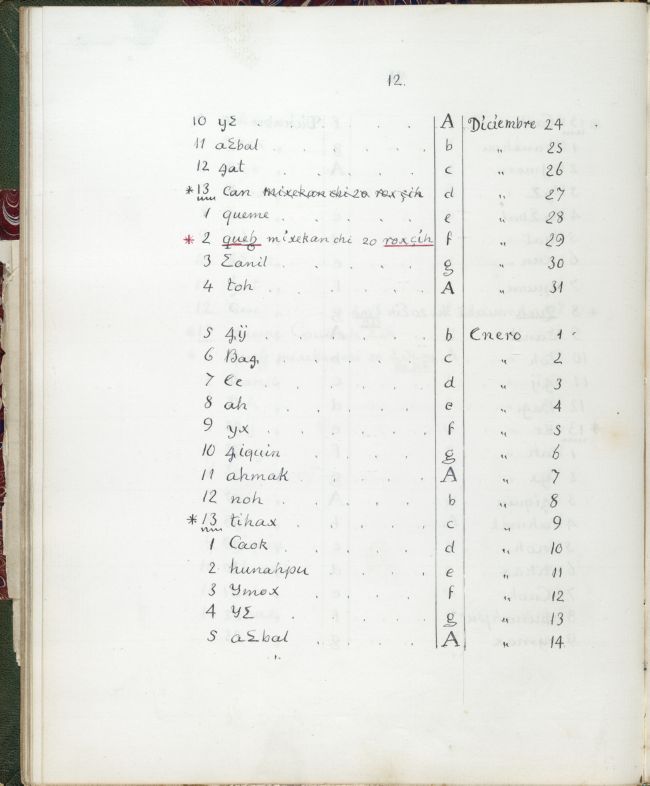 12.
10 yƐ . . . . . A Diciembre 24
11 aƐbal . . . . b " 25
12 ꜭat . . . . . c " 26
*13 Can mixekanchi 20 rox çih d " 27
1 queme . . . . e " 28
* 2 queh mixekanchi 20 roxçih f " 29
3 Ɛanil . . . . g " 30
4 toh . . . . A " 31
5 ꜭij . . . . b Enero 1
6 Baꜭ . . . . c " 2
7 Ee . . . . d " 3
8 ah . . . . e " 4
9 yx . . . . f " 5
10 ꜭiquin . . . . g " 6
11 ahmak . . . . A " 7
12 noh . . . . b " 8
*13 tihax . . . . c " 9
1 Caok . . . . d " 10
2 hunahpu . . . . e " 11
3 Ymox . . . . f " 12
4 YƐ . . . . g " 13
5 aƐbal . . . . A " 14